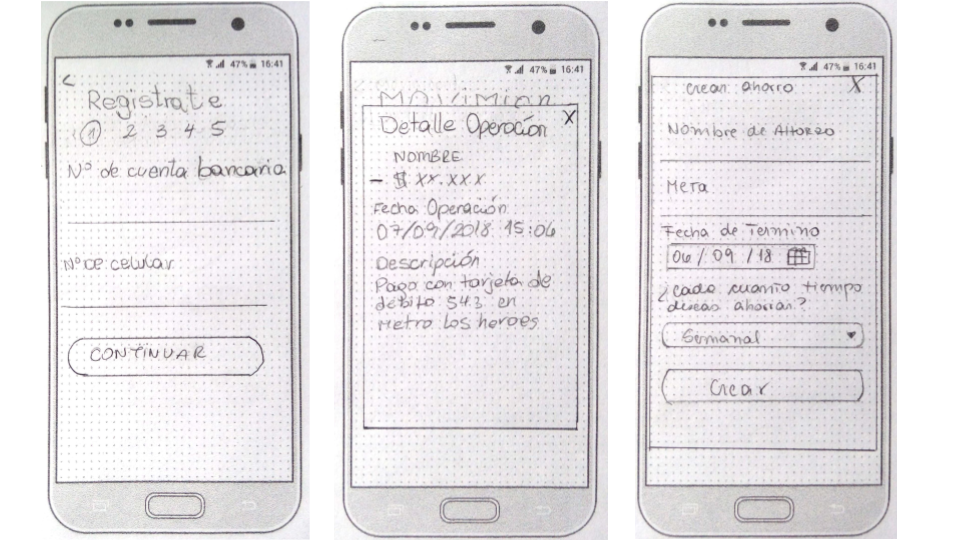 47% 16:41
<
Registrate
1 2 3 4 5
N° de cuenta bancaria
N° de celular
CONTINUAR
47% 16:41
Movimien
Detalle Operación X
NOMBRE
- $ xx.xxx
Fecha Operación
07/09/2018 15:06
Descripción
Pago con tarjeta de
debito 543 en
Metro los heroes
47% 16:41
crear ahorro X
Nombre de AHorro
Meta
Fecha de Termino
06/09/18
¿cada cuanto tiempo
deseas ahorrar?
Semanal
Crear